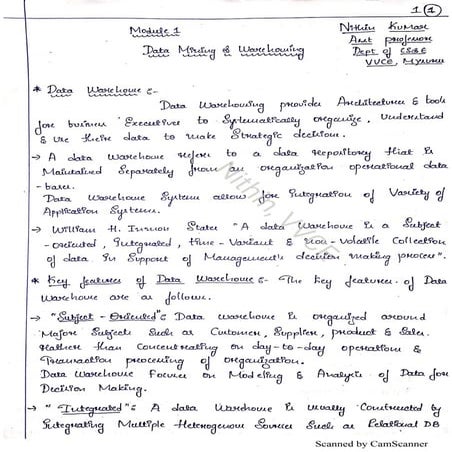 1 (1)
Module 1
Nithin Kumar
Asst professor
Data Mining & Warehousing
Dept of CS&E
VVCE, Mysuru
* Data Warehouse :-
Data Warehousing provides Architectures & tools
for business Executive to Systematically organize, Understand
& use their data to make Strategic decision.
→ A data Warehouse refers to a data repository that is
Maintained Separately from an organization operational data
-base.
Data Warehouse System allow for integration of Variety of
Application Systems.
→ William H. Inmon States "A data Warehouse is a Subject
-oriented, Integrated, time-Variant & non-Volatile Collection
of data in Support of Management's decision making process".
* Key features of Data Warehouse :- The key features of Data
Warehouse are as follows.
→ "Subject-Oriented": Data warehouse is organized around
Major Subjects Such as Customer, Supplier, product & Sales.
Rather than Concentrating on day-to-day operations &
Transaction processing of organization.
Data Warehouse Focuses on Modeling & Analysis of Data for
Decision Making.
→ "Integrated": A data Warehouse is usually Constructed by
integrating Multiple Heterogenous Sources Such as Relational DB
Nithin, VVCE
Scanned by CamScanner